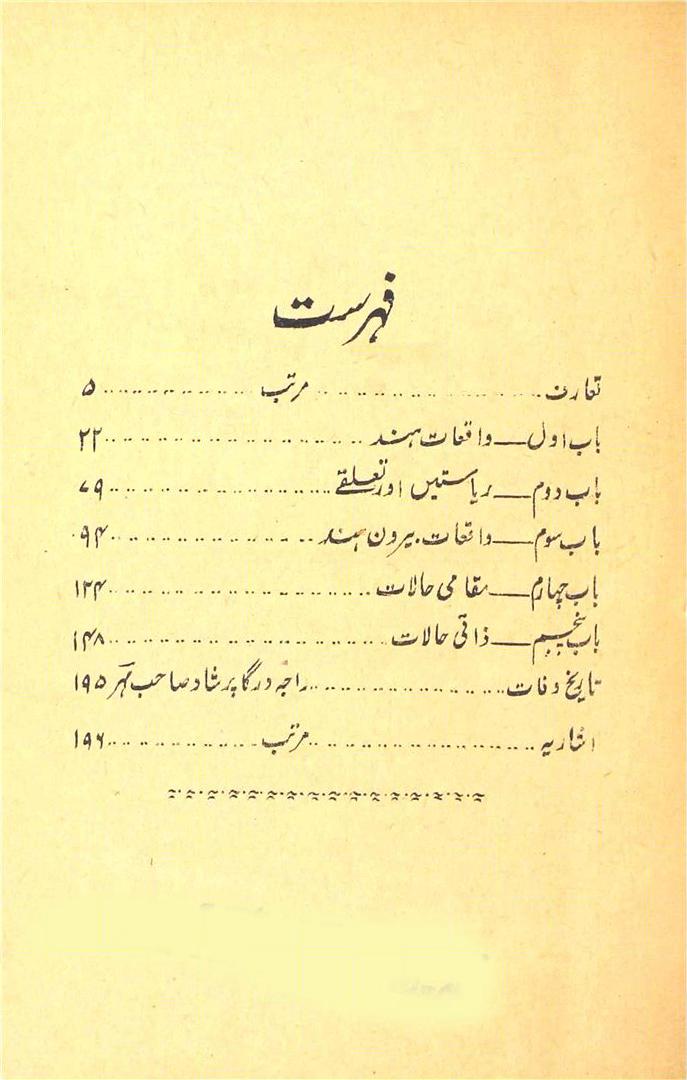 فہرست
تعارف .................. مرتب .................. ۵
باب اول — واقعات ہند .................. ۲۲
باب دوم — ریاستیں اور تعلقے .................. ۷۹
باب سوم — واقعات بیرون ہند .................. ۹۴
باب چہارم — مقامی حالات .................. ۱۲۴
باب پنجم — ذاتی حالات .................. ۱۴۸
تاریخ وفات .................. راجہ درگا پرشاد صاحب مہر ۱۹۵
اشاریہ .................. مرتب .................. ۱۹۶